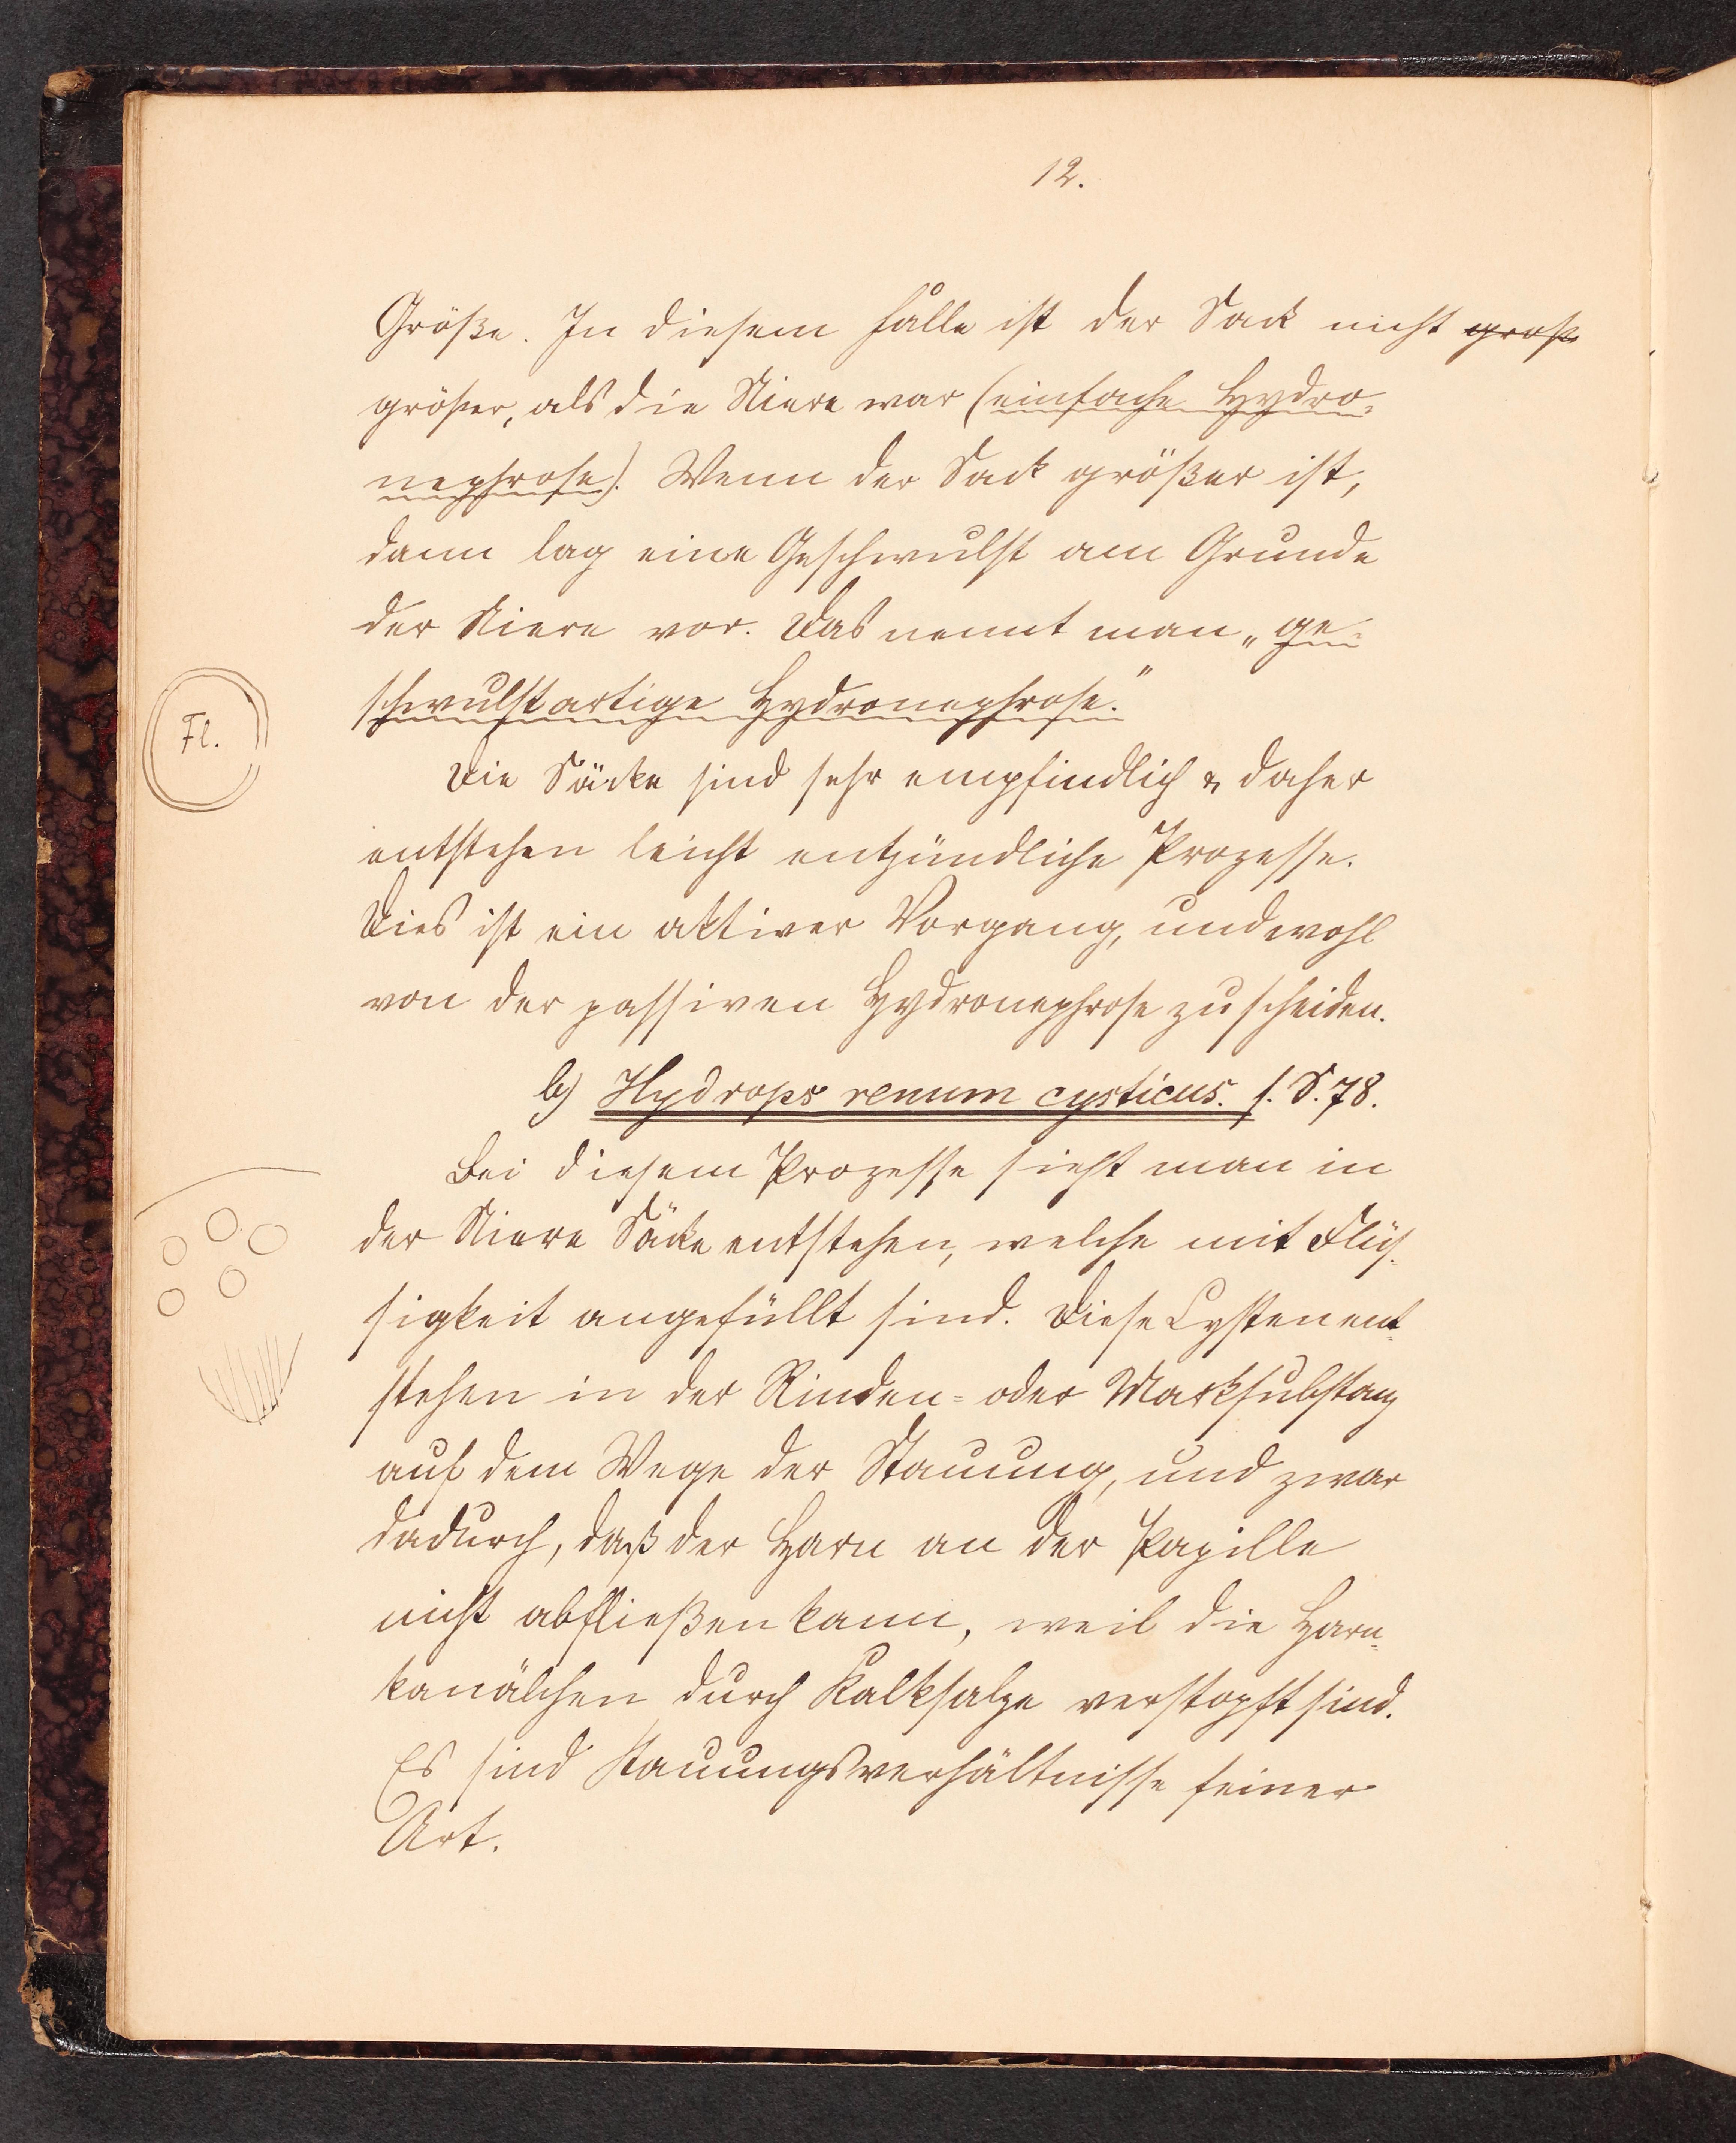 12.
Größe. In diesem Falle ist der Sack nicht groß
größer, als die Niere war (einfache Hydro-
nephrose). Wenn der Sack größer ist,
dann lag eine Geschwulst am Grunde
der Niere vor. Das nennt man „ge-
schwulstartige Hydronephrose."
Fl.
Die Säcke sind sehr empfindlich & daher
entstehen leicht entzündliche Prozesse.
Dies ist ein aktiver Vorgang, und wohl
von der passiven Hydronephrose zu scheiden.
b) Hydrops renum cysticus. s. S. 78.
Bei diesem Prozesse sieht man in
der Niere Säcke entstehen, welche mit Flüs-
sigkeit angefüllt sind. Diese Cysten ent-
stehen in der Rinden- oder Marksubstanz
auf dem Wege der Stauung, und zwar
dadurch, daß der Harn an der Papille
nicht abfließen kann, weil die Harn-
kanälchen durch Kalksalze verstopft sind.
Es sind Stauungsverhältnisse feiner
Art.